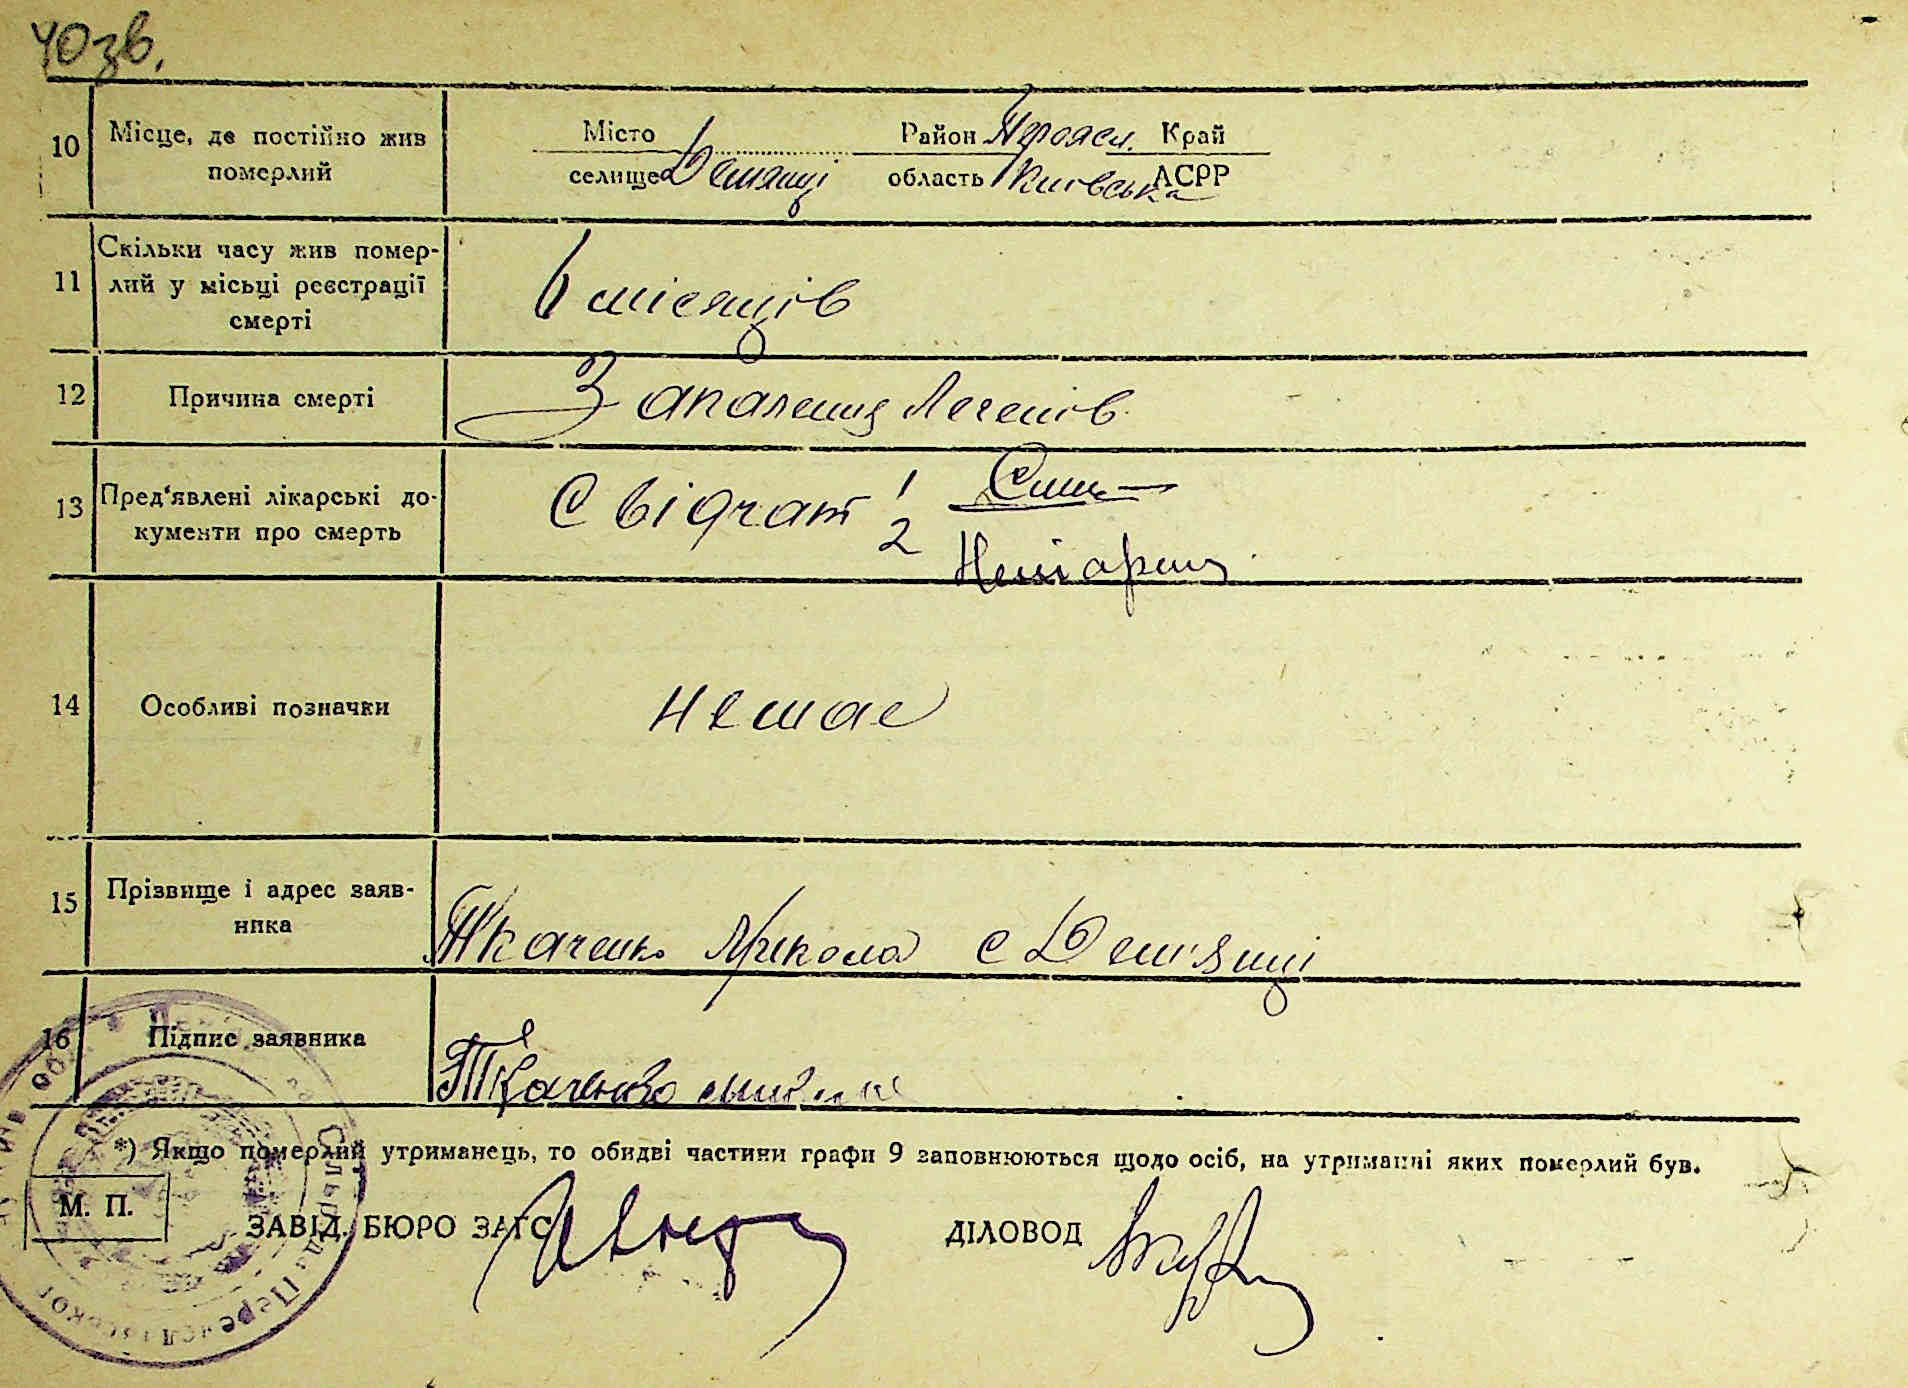 40зв.
10 Місце, де постійно жив померлий
Місто Район Переясл. Край
селище Демянці область Київська АСРР
11 Скільки часу жив помер-
лий у місьці реєстрації
смерті
6 місяців
12 Причина смерті Запалення Легенів
13 Пред'явлені лікарські до-
кументи про смерть
Свідчат 1
2
14 Особливі позначки немае
15 Прізвище і адрес заяв-
ника
Ткаченко Микола с Дем'янці
16 Підпис заявника Ткаченко
*) Якщо померлий утриманець, то обидві частини графи 9 заповнюються щодо осіб, на утриманні яких померлий був.
М. П.
ЗАВІД. БЮРО ЗАГС ДІЛОВОД